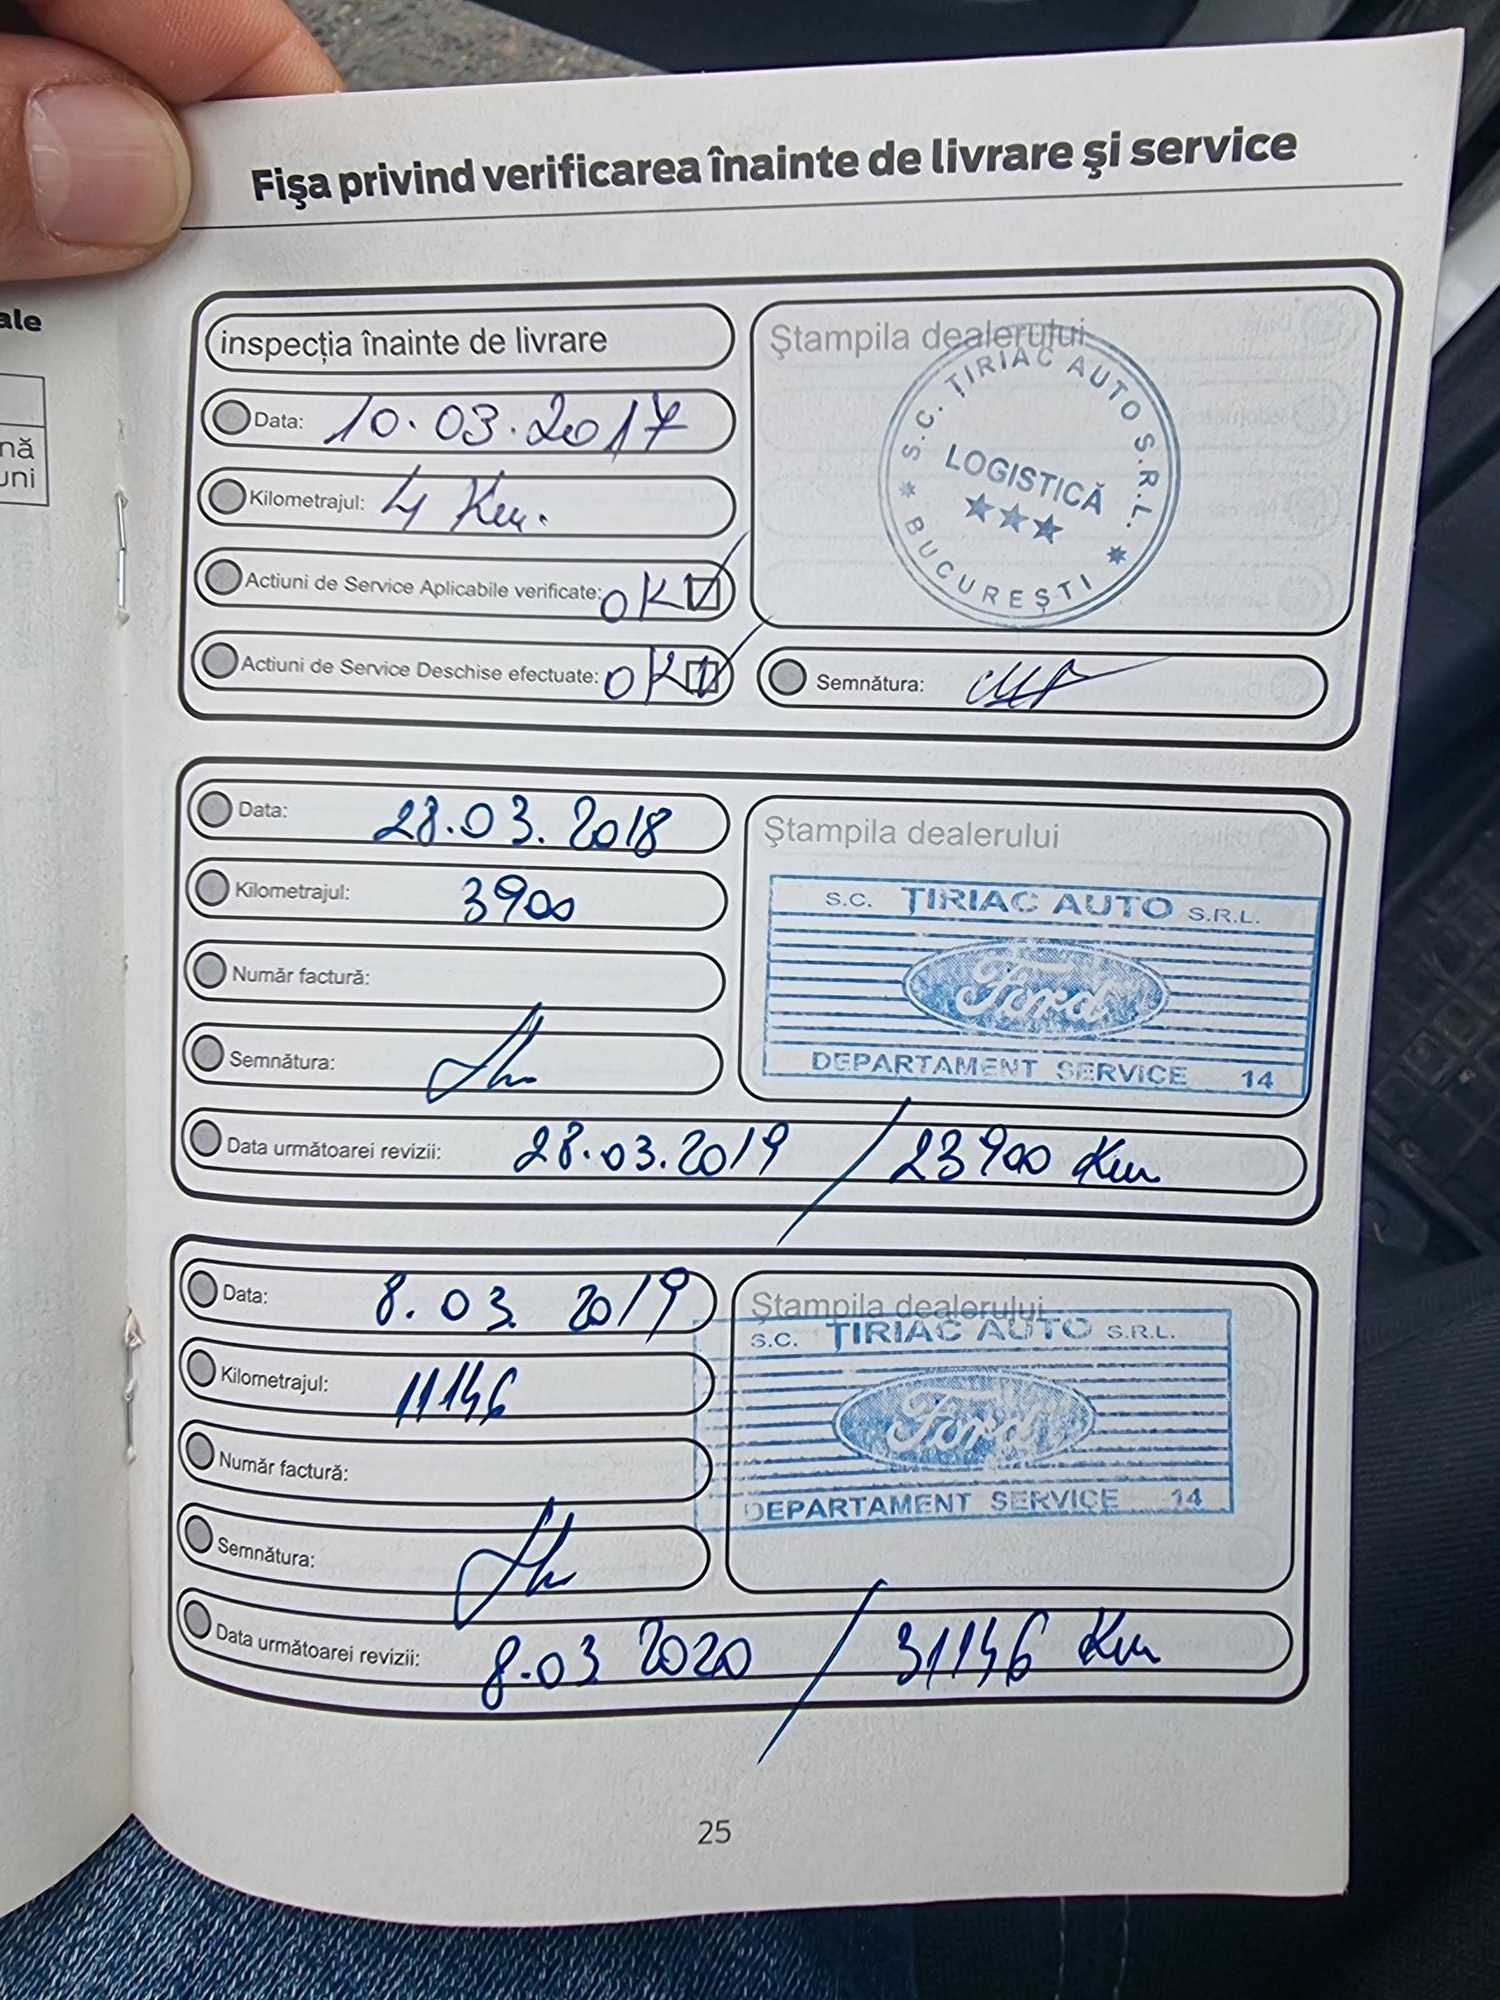 ale
nă
uni
Fişa privind verificarea înainte de livrare şi service
inspecția înainte de livrare
Data: 10.03.2017
Kilometrajul: 4 Km.
Actiuni de Service Aplicabile verificate: OK
Actiuni de Service Deschise efectuate: OK
Ştampila dealerului
S.C. ŢIRIAC AUTO S.R.L.
LOGISTICĂ
BUCUREŞTI
Semnătura:
Data: 28.03.2018
Kilometrajul: 3900
Număr factură:
Semnătura:
Ştampila dealerului
S.C. ŢIRIAC AUTO S.R.L.
Ford
DEPARTAMENT SERVICE 14
Data următoarei revizii: 28.03.2019 / 23900 Km
Data: 8.03.2019
Kilometrajul: 11146
Număr factură:
Semnătura:
Ştampila dealerului
S.C. ŢIRIAC AUTO S.R.L.
Ford
DEPARTAMENT SERVICE 14
Data următoarei revizii: 8.03 2020 / 31146 Km
25